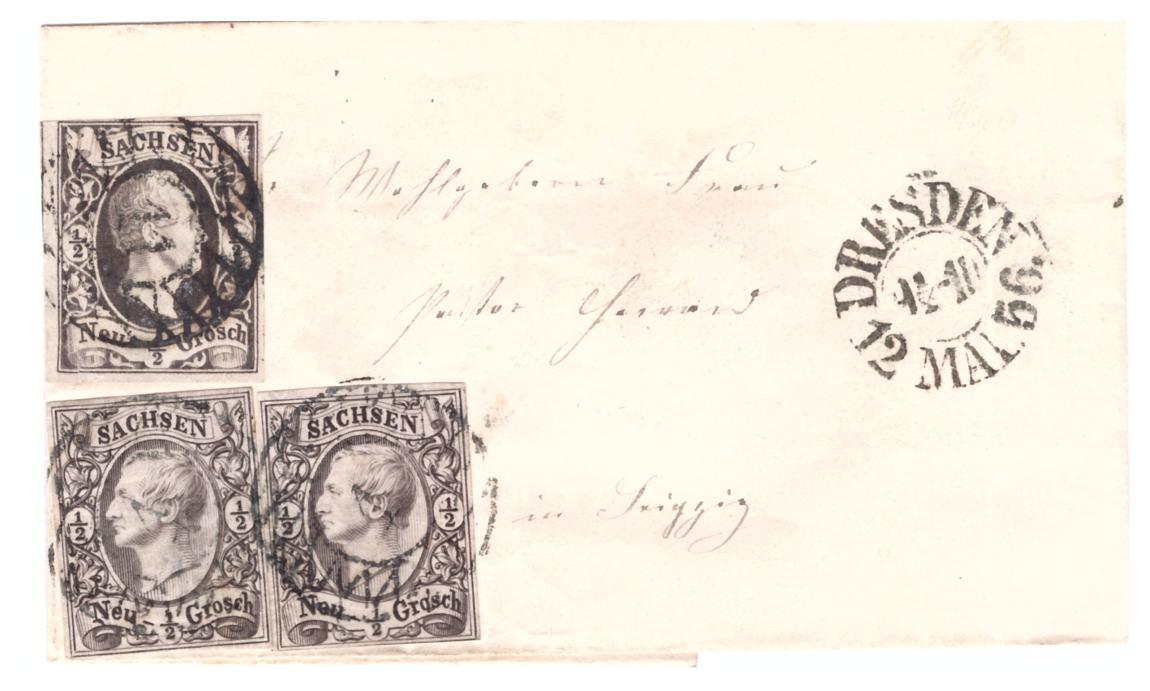 SACHSEN
½ ½
Neu- ½ Grosch
SACHSEN
½ ½
Neu- ½ Grosch
SACHSEN
½ ½
Neu- ½ Grosch
Wohlgeboren Frau
Pastor
in Leipzig
DRESDEN
12 MAI. 56.